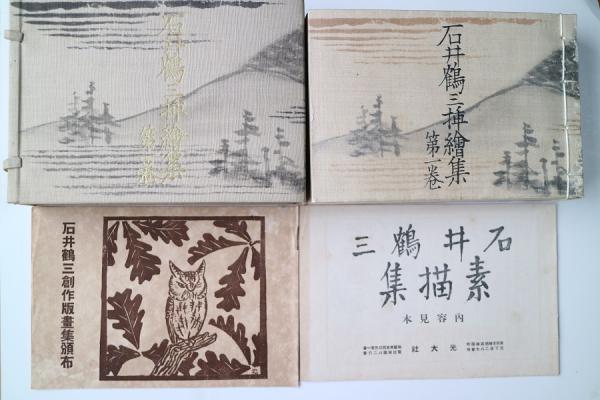 石井鶴三挿繪集
第一巻
石井鶴三挿繪集
第一巻
石井鶴三創作版畫集頒布
石井鶴三
素描集
内容見本
光大社